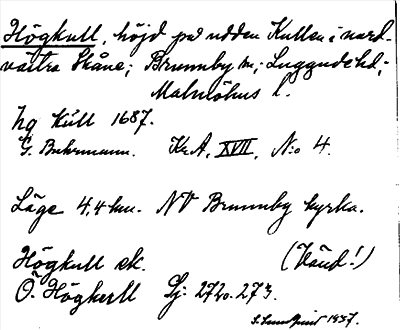 Högkull, höjd på udden Kullen i nord-
västra Skåne; Brunnby sn; Luggude hd;
Malmöhus l.
hg Kull 1687.
G. Buhrmann. KrA, XVII, N:o 4.
Läge 4,4 km. NV Brunnby kyrka.
Högkull ek. (Vänd!)
Ö. Högkull Sj: 272o. 273.
1937.